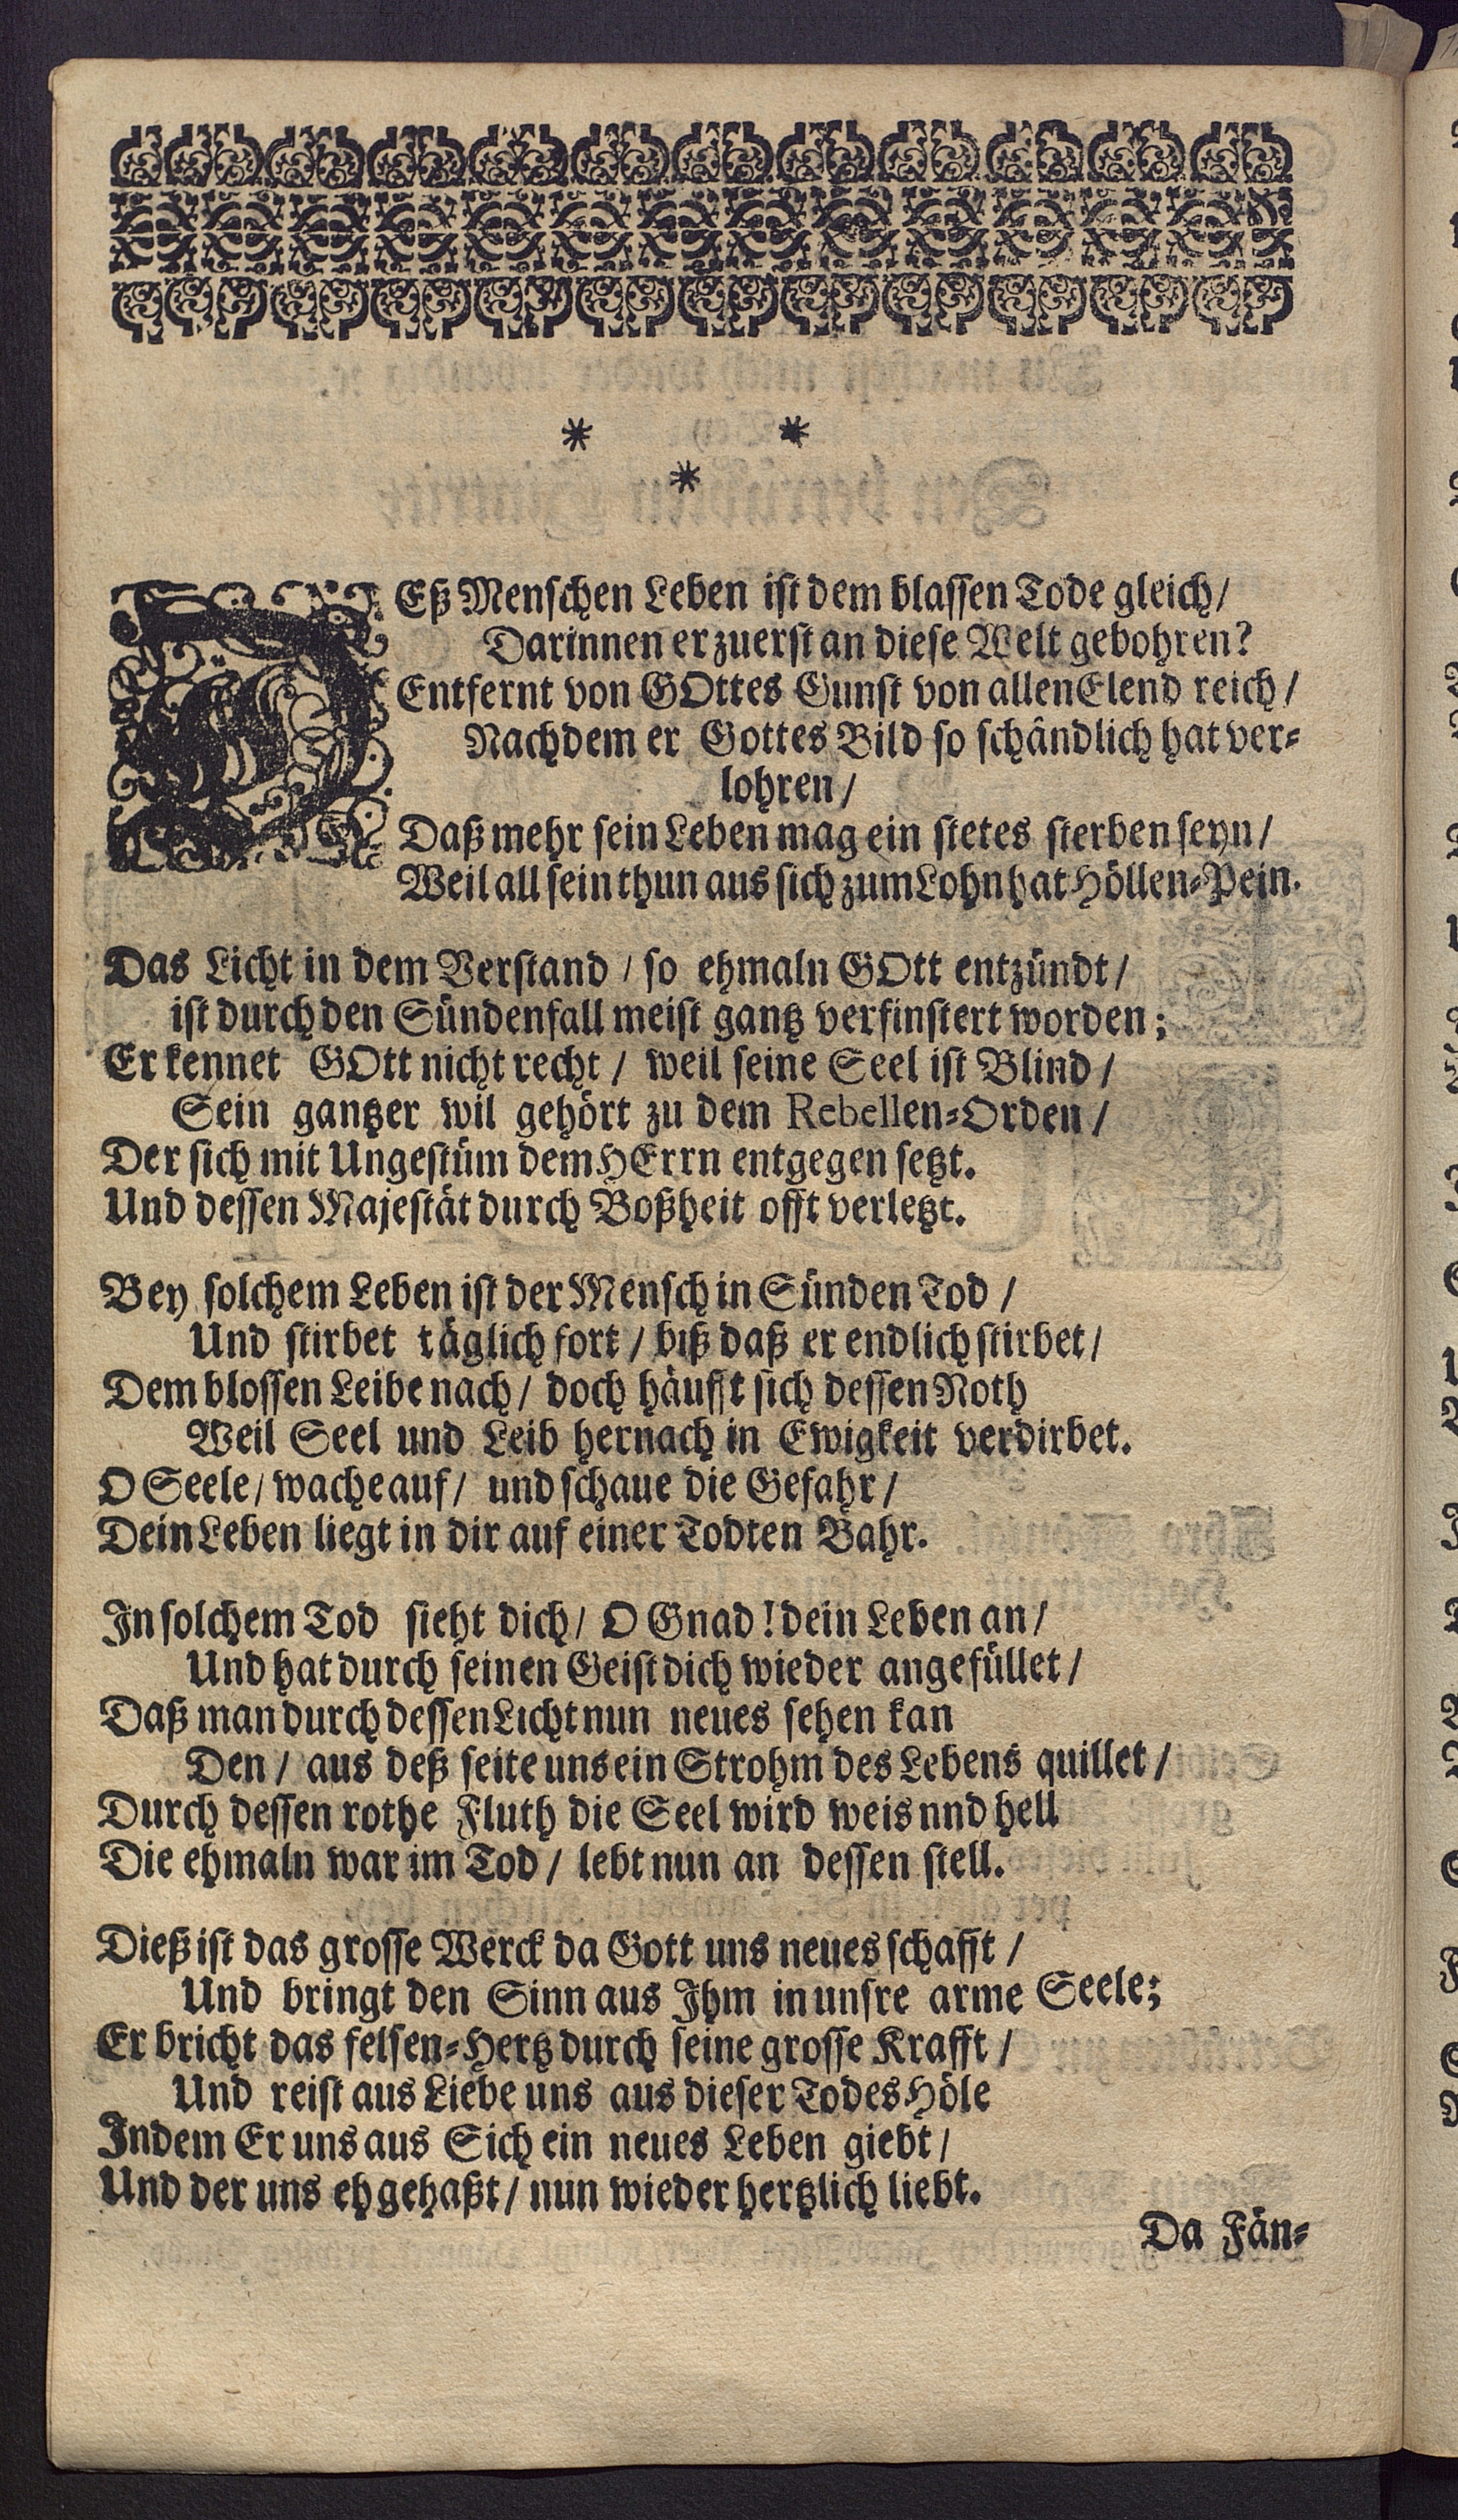 * *
*
DEß Menschen Leben ist dem blassen Tode gleich/
Darinnen er zuerst an diese Welt gebohren?
Entfernt von GOttes Gunst von allen Elend reich/
Nachdem er Gottes Bild so schändlich hat ver-
lohren/
Daß mehr sein Leben mag ein stetes sterben seyn/
Weil all sein thun aus sich zum Lohn hat Höllen-Pein.
Das Licht in dem Verstand / so ehmaln GOtt entzündt/
ist durch den Sündenfall meist gantz verfinstert worden;
Er kennet GOtt nicht recht / weil seine Seel ist Blind/
Sein gantzer wil gehört zu dem Rebellen-Orden/
Der sich mit Ungestüm dem HErrn entgegen setzt.
Und dessen Majestät durch Boßheit offt verletzt.
Bey solchem Leben ist der Mensch in Sünden Tod /
Und stirbet täglich fort / biß daß er endlich stirbet/
Dem blossen Leibe nach / doch häufft sich dessen Noth
Weil Seel und Leib hernach in Ewigkeit verdirbet.
O Seele / wache auf / und schaue die Gefahr /
Dein Leben liegt in dir auf einer Todten Bahr.
In solchem Tod sieht dich / O Gnad! dein Leben an/
Und hat durch seinen Geist dich wieder angefüllet /
Daß man durch dessen Licht nun neues sehen kan
Den / aus deß seite uns ein Strohm des Lebens quillet /
Durch dessen rothe Fluth die Seel wird weis nnd hell
Die ehmaln war im Tod / lebt nun an dessen stell.
Dieß ist das grosse Werck da Gott uns neues schafft /
Und bringt den Sinn aus Ihm in unsre arme Seele;
Er bricht das felsen-Hertz durch seine grosse Krafft /
Und reist aus Liebe uns aus dieser Todes Höle
Indem Er uns aus Sich ein neues Leben giebt/
Und der uns eh gehaßt / nun wieder hertzlich liebt.
Da Fän-